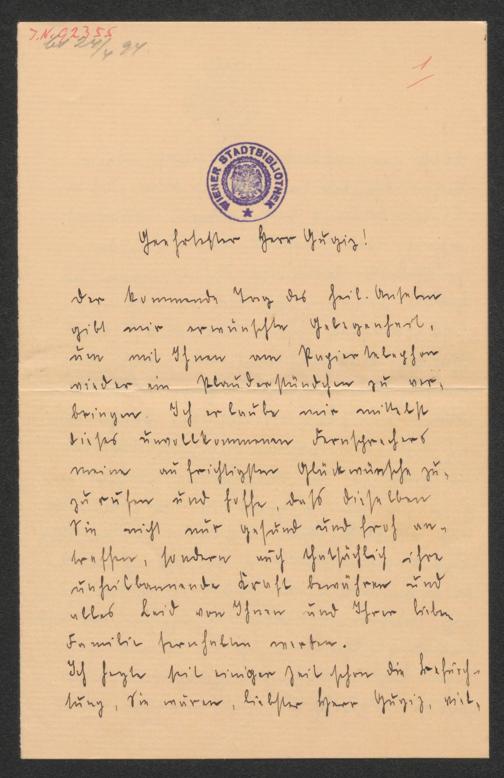 J.N. 92355
24/4 94
1
WIENER STADTBIBLIOTHEK
Geehrtester Herr Gugiz!
Der kommende Tag des heil. Anselm
gibt mir erwünschte Gelegenheit,
um mit Ihnen am Papiertelephon
wieder ein Plauderstündchen zu ver-
bringen. Ich erlaube mir mittelst
dieses unvollkommenen Fernsprechers
meine aufrichtigsten Glückwünsche zu-
zurufen und hoffe, dass dieselben
Sie nicht nur gesund und froh an-
treffen, sondern auch thatsächlich ihre
unheilbannende Kraft bewähren und
alles Leid von Ihnen und Ihrer lieben
Familie fernhalten werden.
Ich hegte seit einiger Zeit schon die Befürch-
tung, Sie wären, liebster Herr Gugiz, viel-